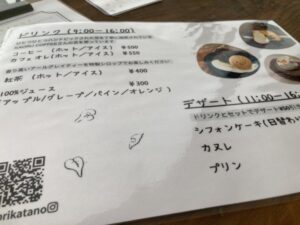 ドリンク (9:00~16:00)
コーヒー (ホット/アイス) ¥500
カフェオレ(ホット/アイス) ¥550
紅茶 (ホット/アイス) ¥400
100%ジュース ¥300
アップル/グレープ/パイン/オレンジ)
デザート (11:00~16:
ドリンクとセットでデザート
シフォンケーキ(日替わ
カヌレ
プリン
rikatano